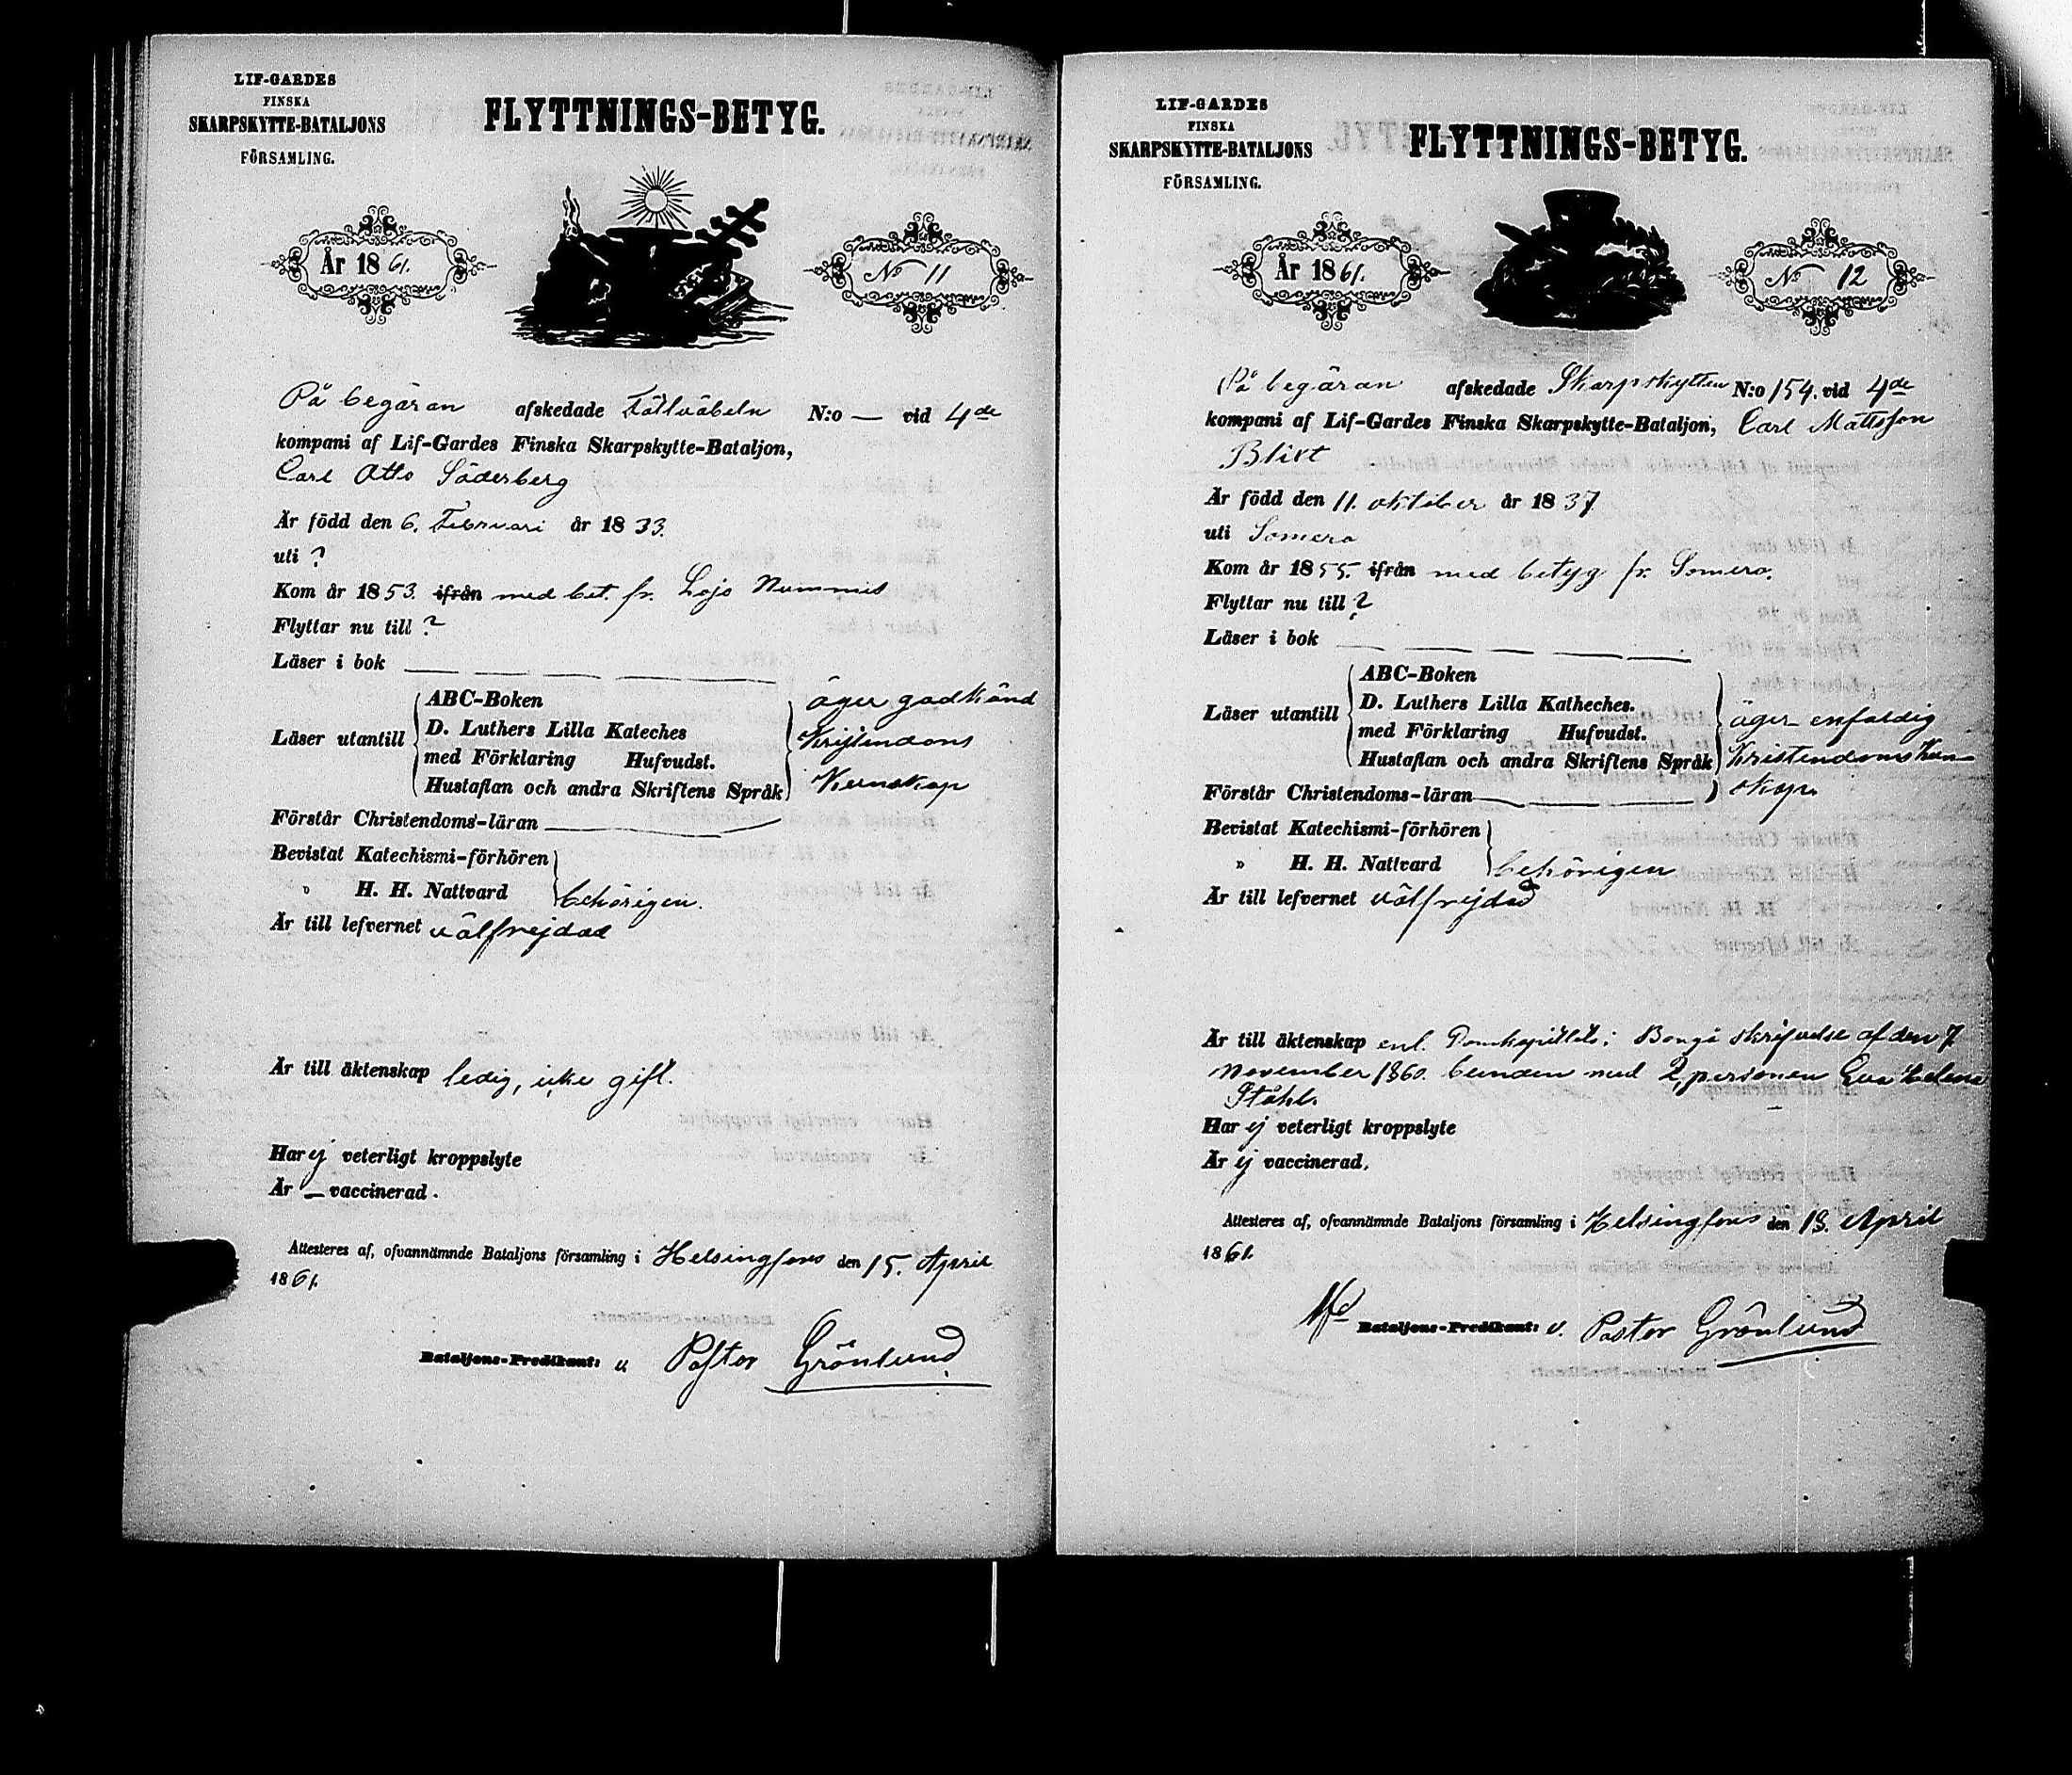 LIF-GARDES
FINSKA
SKARPSKYTTE-BATALJONS
FÖRSAMLING.
FLYTTNINGS-BETYG.
År 1861.
No 11
På begäran afskedade Fältväbeln N:o — vid 4de
kompani af Lif-Gardes Finska Skarpskytte-Bataljon,
Carl Otto Söderberg
Är född den 6. Februari år 1833.
uti ?
Kom år 1853. ifrån med bet. fr. Lojo Nummis
Flyttar nu till ?
Läser i bok
Läser utantill
ABC-Boken
D. Luthers Lilla Kateches
med Förklaring Hufvudst.
Hustaflan och andra Skriftens Språk
äger godkänd
Kristendoms
Kunskap
Förstår Christendoms-läran
Bevistat Katechismi-förhören
" H. H. Nattvard behörigen.
Är till lefvernet välfrejdad
Är till äktenskap ledig, icke gift.
Har ej veterligt kroppslyte
Är — vaccinerad.
Attesteres af, ofvannämnde Bataljons församling i Helsingfors den 15. April
1861.
Bataljons-Predikant: v Pastor Grönlund
LIF-GARDES
FINSKA
SKARPSKYTTE-BATALJONS
FÖRSAMLING.
FLYTTNINGS-BETYG.
År 1861.
No 12
På begäran afskedade Skarpskytten N:o 154. vid 4de
kompani af Lif-Gardes Finska Skarpskytte-Bataljon, Carl Mattsson
Blixt
Är född den 11. oktober år 1837
uti Somero
Kom år 1855. ifrån med betyg fr. Somero.
Flyttar nu till ?
Läser i bok
Läser utantill
ABC-Boken
D. Luthers Lilla Katheches.
med Förklaring Hufvudst.
Hustaflan och andra Skriftens Språk
äger enfaldig
Kristendoms kun-
skap.
Förstår Christendoms-läran
Bevistat Katechismi-förhören
" H. H. Nattvard behörigen
Är till lefvernet välfrejdad
Är till äktenskap enl. Domkapitlets i Borgå skrifvelse af den 7
November 1860. bunden med Eva Helena
Ståhl.
Har ej veterligt kroppslyte
Är ej vaccinerad.
Attesteres af, ofvannämnde Bataljons församling i Helsingfors den 18. April
1861.
Bataljons-Predikant: v. Pastor Grönlund